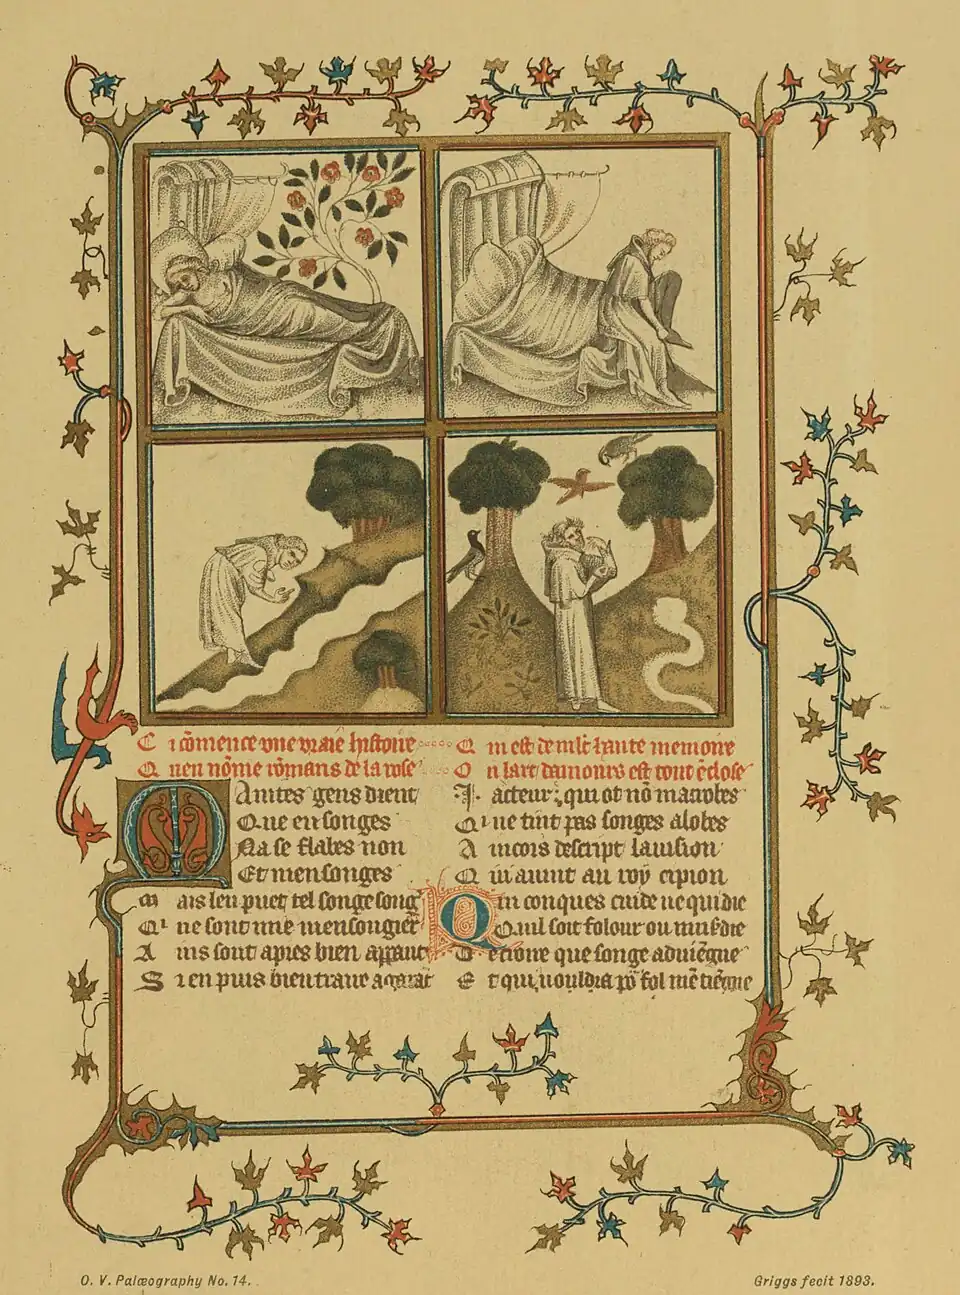 Ci cōmence vne vraie histoire
Quen nōme rōmans de la rose
Maintes gens dient
Que en songes
Na se flabes non
Et mensonges
mais len puet tel songe sonḡ
Qi ne sont mie mensongier
Ains sont apres bien apparāt
Si en puis bien traire a garāt
Qui est de mlt haute memoire
On lart damours est tout ēclose
.I. acteur, qui ot nō macrobes
Qi ne tint pas songes a lobes
Aincois descript la uision
Qui auint au roy cipion
Quiconques cuide ne qui die
Quil soit folour ou musdie
De croire que songe aduiēgne
Et qui uouldra por fol mē tiēgne
O. V. Palæography No. 14.
Griggs fecit 1893.